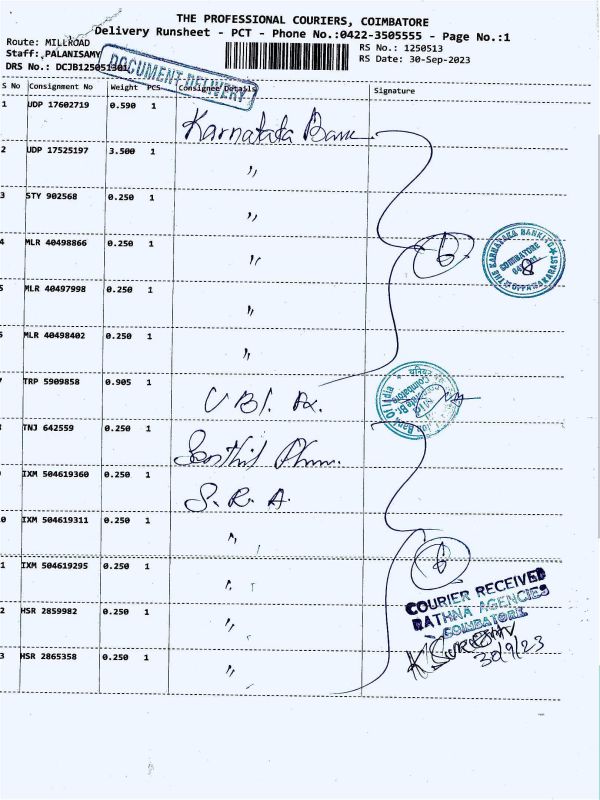 THE PROFESSIONAL COURIERS, COIMBATORE
Delivery Runsheet - PCT - Phone No.:0422-3505555 - Page No.:1
Route: MILLROAD
RS No.: 1250513
Staff: PALANISAMY
RS Date: 30-Sep-2023
DRS No.: DCJB125051301
DOCUMENT DELIVERY
S No Consignment No Weight PCS Consignee Details Signature
1 UDP 17602719 0.590 1 Karnataka Bank
2 UDP 17525197 3.500 1 "
3 STY 902568 0.250 1 "
4 MLR 40498866 0.250 1 "
6
THE KARNATAKA BANK LTD
COIMBATORE
5 MLR 40497998 0.250 1 "
6 MLR 40498402 0.250 1 "
7 TRP 5909858 0.905 1 UBI.
Coimbatore
TNJ 642559 0.250 1 Senthil
IXM 504619360 0.250 1 S.R.A.
0 IXM 504619311 0.250 1 "
1 IXM 504619295 0.250 1 "
6
2 HSR 2859982 0.250 1 "
COURIER RECEIVED
RATHNA AGENCIES
COIMBATORE
3 HSR 2865358 0.250 1 "
30/9/23